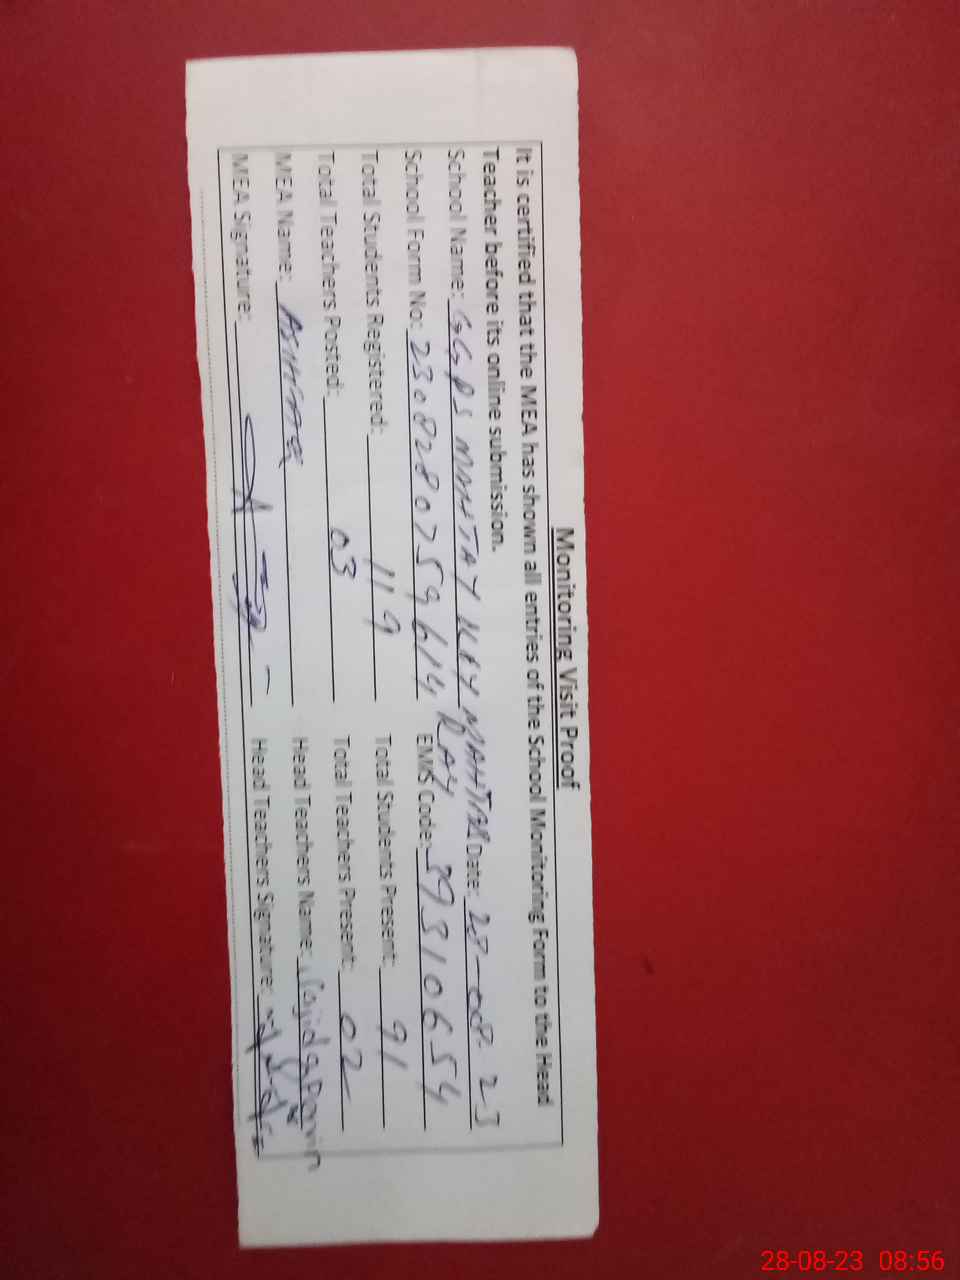 Monitoring Visit Proof
It is certified that the MEA has shown all entries of the School Monitoring Form to the Head
Teacher before its online submission.
School Name: GGPS Date: 28-08-23
School Form No: EMIS Code: 39310654
Total Students Registered: 119 Total Students Present: 91
Total Teachers Posted: 03 Total Teachers Present: 02
MEA Name: Head Teachers Name: Sajida Parvin
MEA Signature: Head Teachers Signature:
28-08-23 08:56